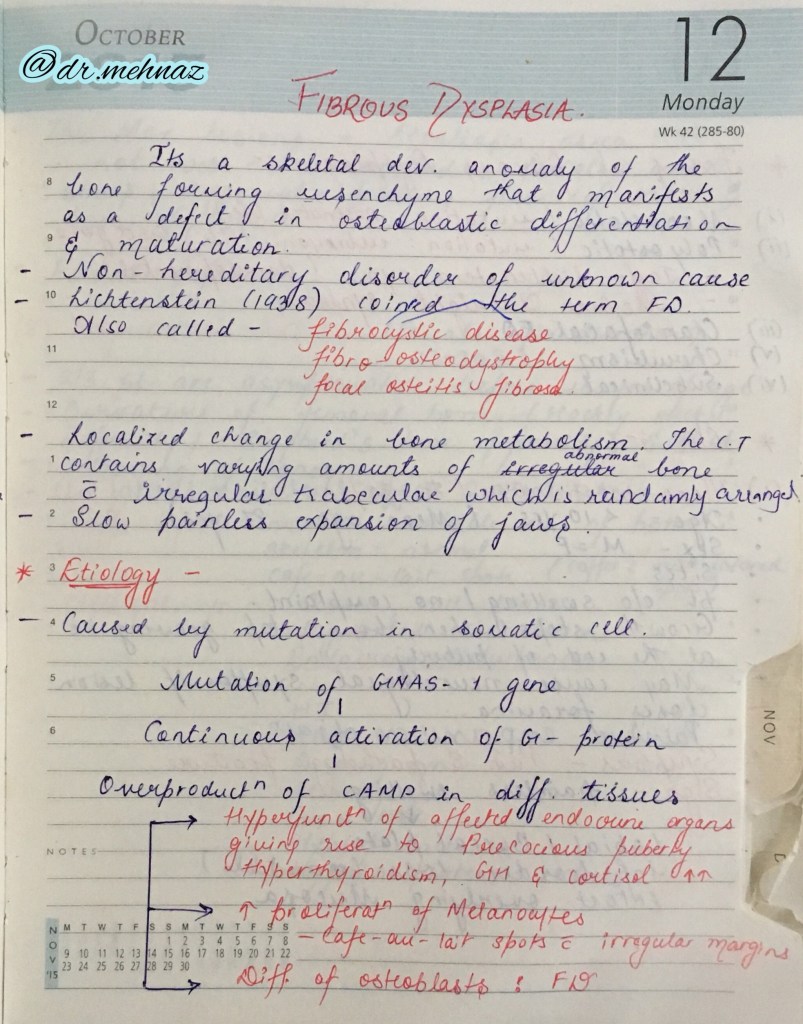 OCTOBER
@dr.mehnaz
12
Monday
Wk 42 (285-80)
FIBROUS DYSPLASIA.
Its a skeletal dev. anomaly of the
8 bone forming mesenchyme that manifests
as a defect in osteoblastic differentiation
9 & maturation.
- Non-hereditary disorder of unknown cause
- 10 Lichtenstein (1938) coined the term FD.
Also called - fibrocystic disease
11 fibro-osteodystrophy
focal osteitis fibrosa.
12
- Localized change in bone metabolism. The C.T
1 contains varying amounts of irregular abnormal bone
c̄ irregular trabeculae which is randamly arranged.
- 2 Slow painless expansion of jaws.
* 3 Etiology -
- 4 Caused by mutation in somatic cell.
5 Mutation of GNAS-1 gene
6 Continuous activation of G- protein
Overproductⁿ of CAMP in diff. tissues
→ Hyperfunctⁿ of affected endocrine organs
giving rise to Precocious puberty
Hyperthyroidism, GH & cortisol ↑↑
→ ↑ proliferatⁿ of Melanocytes
- Cafe-au-lait spots c̄ irregular margins
→ Diff. of osteoblasts : FD
NOTES
NOV '15
M T W T F S S M T W T F S S
1 2 3 4 5 6 7 8
9 10 11 12 13 14 15 16 17 18 19 20 21 22
23 24 25 26 27 28 29 30
NOV
D